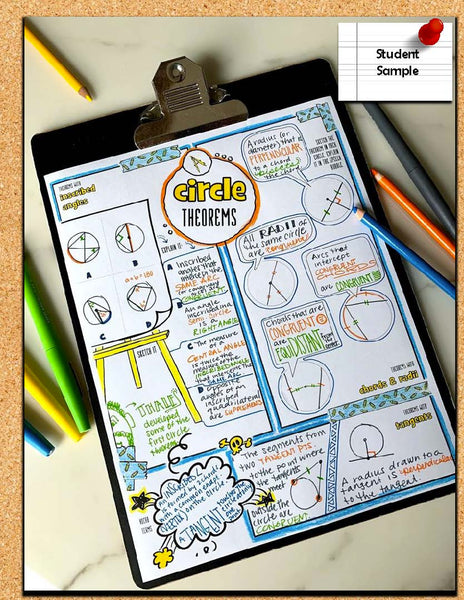 Student
Sample
circle
THEOREMS
THEOREMS WITH
inscribed
angles
A
B
a+b=180
C
D
SKETCH IT
EXPLAIN IT:
A Inscribed
angles that
SAME ARC
CONGRUENT
B An angle
inscribed in a
semi-circle
is a
RIGHT ANGLE
C The measure
of a
CENTRAL ANGLE
is twice the
D Opposite
angles of an
inscribed
quadrilateral
are
THALES
developed
some of the
first circle
theorems
A radius (or
diameter) that is
PERPENDICULAR
to a chord
bisects
the chord
SKETCH THE
THEOREM IN EACH
CIRCLE. EXPLAIN
IT IN THE SPEECH
BUBBLE.
All RADII of
the same circle
are congruent
Arcs that
intercept
CONGRUENT
CHORDS
are CONGRUENT
Chords that are
CONGRUENT
are
EQUIDISTANT
from the
center
THEOREMS WITH
chords & radii
THEOREMS WITH
tangents
The segments from
two TANGENT PTS.
to the point where
the tangents
meet
outside the
circle are
CONGRUENT
A radius drawn to a
tangent is perpendicular
to the tangent.
MICRO
TERMS
INSCRIBED
A TANGENT